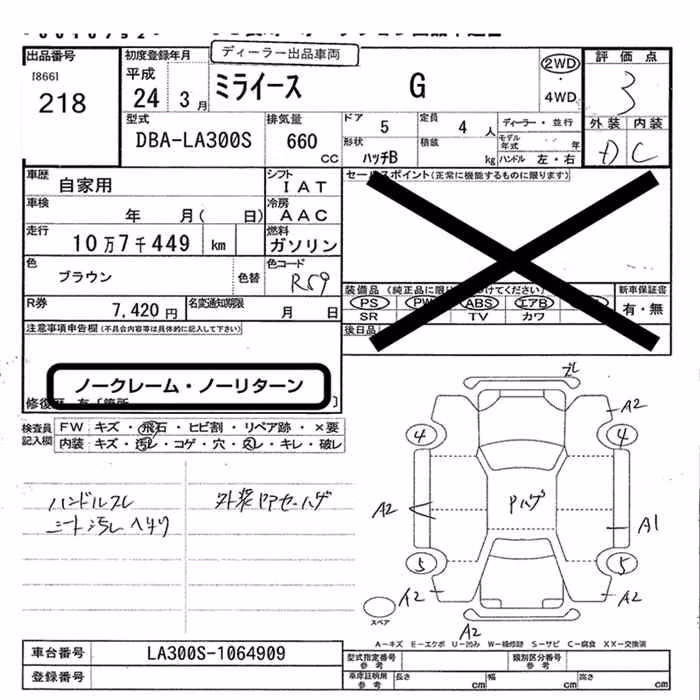 ディーラー出品車両
出品番号
18661
218
初度登録年月
平成
24 3月
ミライース G
2WD
・
4WD
評価点
3
外装 内装
D C
型式
DBA-LA300S
排気量
660 CC
ドア
5
定員
4 人
ディーラー・並行
モデル年式 年
形状
ハッチB
積載
kg
ハンドル 左・右
車歴
自家用
シフト
IAT
車検
年 月( 日)
冷房
AAC
走行
10万7千449 km
燃料
ガソリン
色
ブラウン
色替
色コード
R59
R券
7,420円
名変通知期限
月 日
セールスポイント(正常に機能するものに限ります)
装備品
PS PW ABS エアB
SR TV カワ
新車保証書
有・無
後日品
注意事項申告欄(不具合内容等は具体的に記入して下さい)
ノークレーム・ノーリターン
検査員
記入欄
FW キズ・飛石・ヒビ割・リペア跡・×要
内装 キズ・汚レ・コゲ・穴・スレ・キレ・破レ
ハンドルスレ
シート汚レ ヘタリ
ズレ
A2
4 4
A2
Pハゲ
A1
5 5
A2 A2
A2
スペア
A-キズ E-エクボ U-凹み W-補修跡 S-サビ C-腐食 XX-交換済
車台番号
LA300S-1064909
登録番号
型式指定番号
参考
類別区分番号
参考
車庫証明用
参考
長さ cm
幅 cm
高さ cm